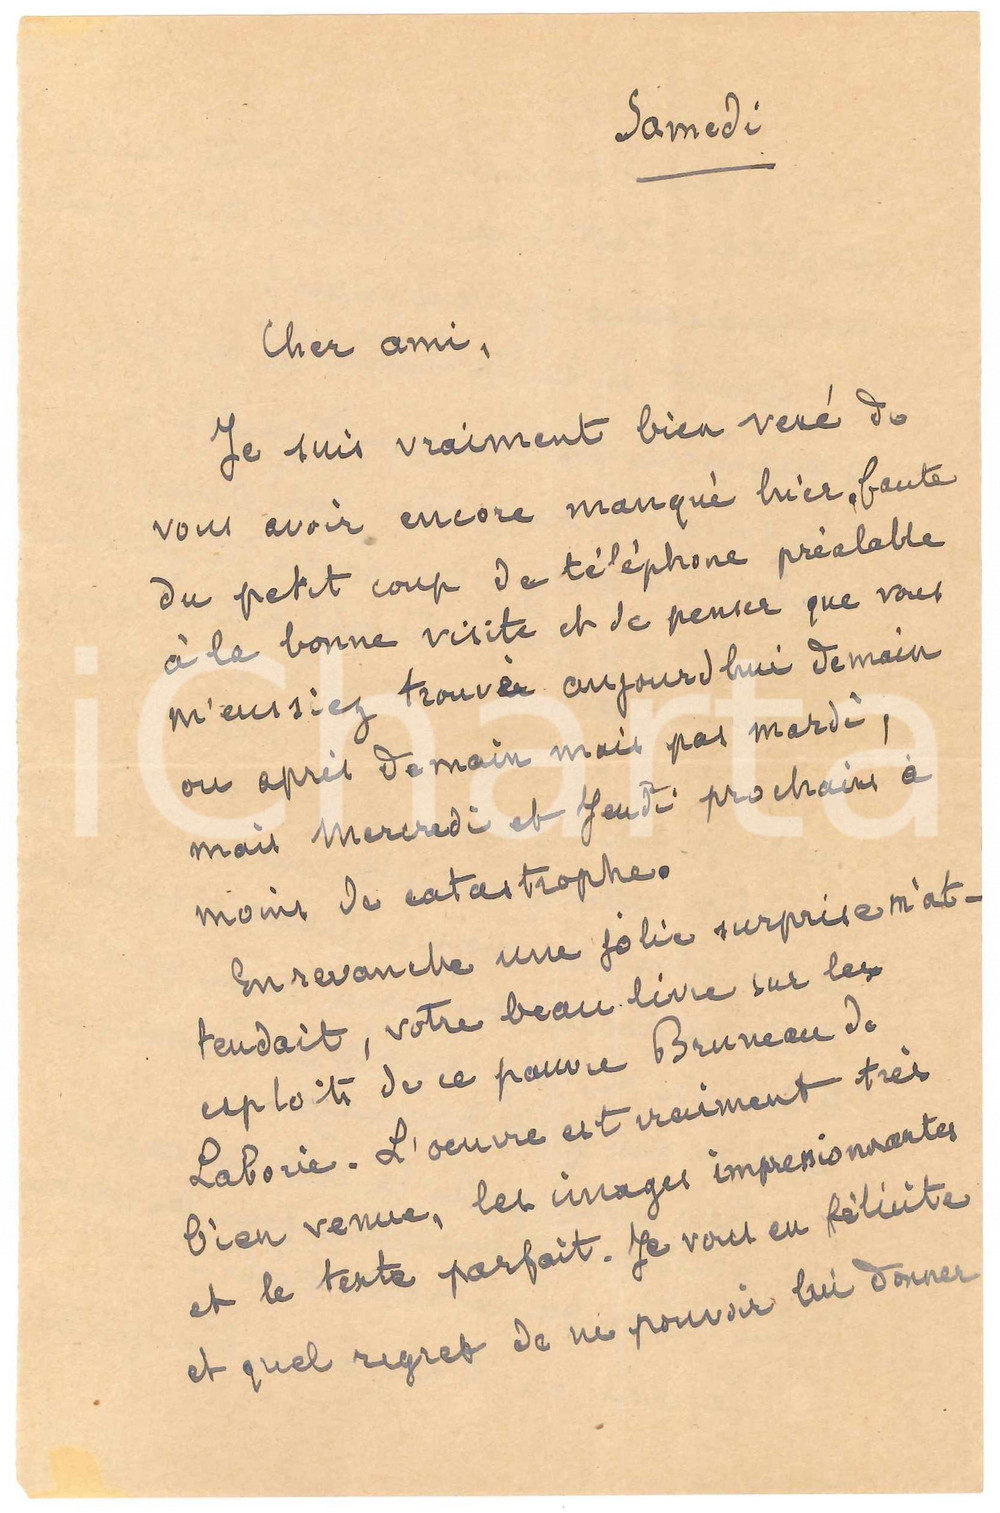 Samedi
Cher ami,
Je suis vraiment bien vexé de
vous avoir encore manqué hier, faute
du petit coup de téléphone préalable
à la bonne visite et de penser que vous
m'eussiez trouvé aujourd'hui demain
ou après demain mais pas mardi,
mais Mercredi et Jeudi prochains à
moins de catastrophe.
En revanche une jolie surprise m'at-
tendait, votre beau livre sur les
exploits de ce pauvre Bruneau de
Laborie. L'oeuvre est vraiment très
bien venue, les images impressionnantes
et le texte parfait. Je vous en félicite
et quel regret de ne pouvoir lui donner
iCharta